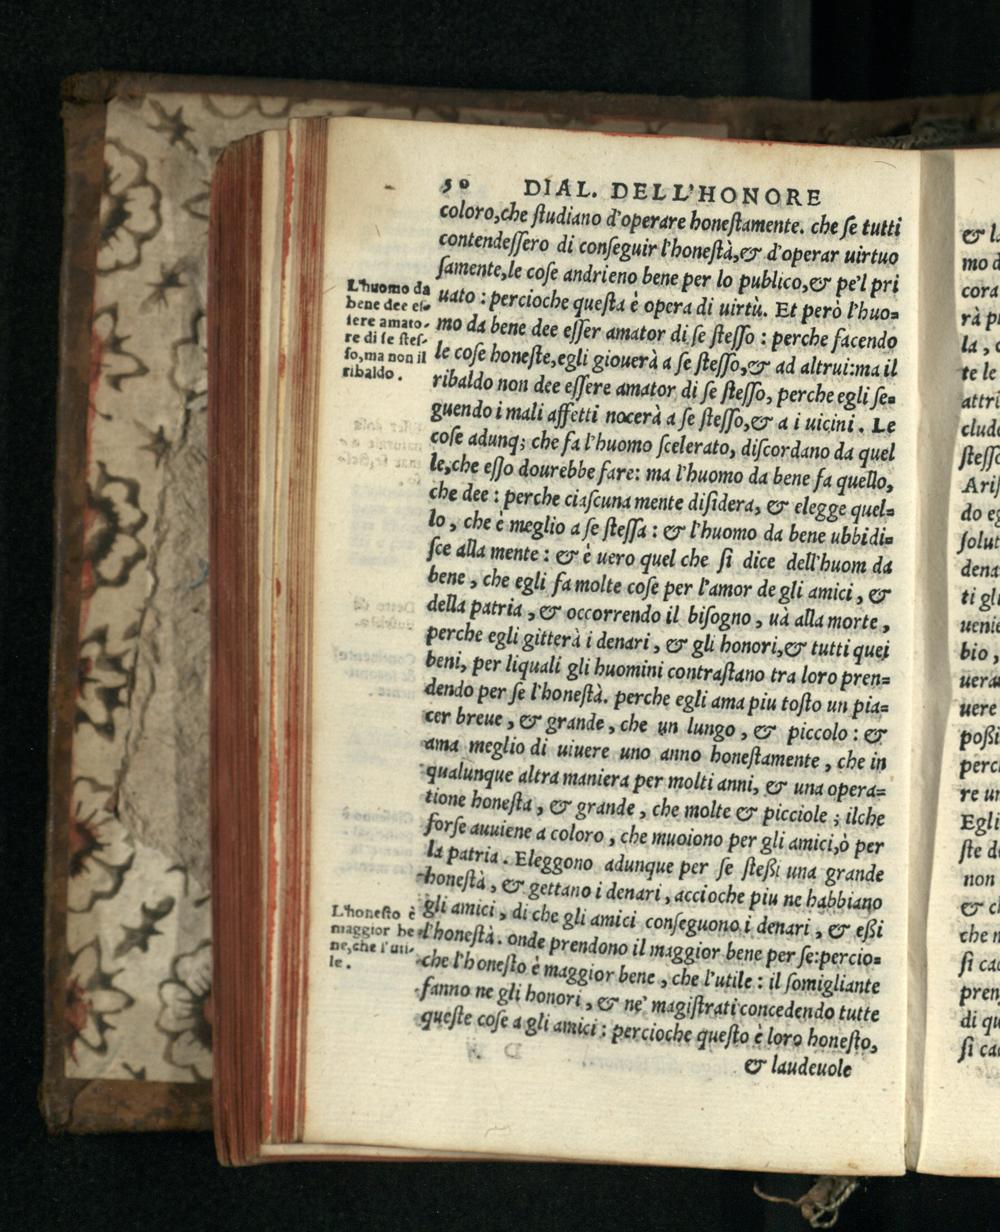 50 DIAL. DELL'HONORE
coloro,che ſtudiano d'operare honeſtamente. che ſe tutti
contendeſſero di conſeguir l'honeſtà,& d'operar uirtuo
ſamente,le coſe andrieno bene per lo publico,& pe'l pri
uato : percioche queſta è opera di uirtù. Et però l'huo=
mo da bene dee eſſer amator di ſe ſteſſo : perche facendo
le coſe honeſte,egli giouerà a ſe ſteſſo,& ad altrui:ma il
ribaldo non dee eſſere amator di ſe ſteſſo, perche egli ſe=
guendo i mali affetti nocerà a ſe ſteſſo,& a i uicini. Le
coſe adunq; che fa l'huomo ſcelerato, diſcordano da quel
le,che eſſo dourebbe fare: ma l'huomo da bene fa quello,
che dee : perche ciaſcuna mente diſidera, & elegge quel=
lo, che è meglio a ſe ſteſſa : & l'huomo da bene ubbidi=
ſce alla mente : & è uero quel che ſi dice dell'huom da
bene, che egli fa molte coſe per l'amor de gli amici, &
della patria, & occorrendo il biſogno, uà alla morte,
perche egli gitterà i denari, & gli honori,& tutti quei
beni, per liquali gli huomini contraſtano tra loro pren=
dendo per ſe l'honeſtà. perche egli ama piu toſto un pia=
cer breue, & grande, che un lungo, & piccolo : &
ama meglio di uiuere uno anno honeſtamente, che in
qualunque altra maniera per molti anni, & una opera=
tione honeſta, & grande, che molte & picciole ; ilche
forſe auuiene a coloro, che muoiono per gli amici,ò per
la patria. Eleggono adunque per ſe ſteßi una grande
honeſtà, & gettano i denari, accioche piu ne habbiano
gli amici, di che gli amici conſeguono i denari, & eßi
l'honeſtà. onde prendono il maggior bene per ſe:percio=
che l'honeſto è maggior bene, che l'utile : il ſomigliante
fanno ne gli honori, & ne' magiſtrati concedendo tutte
queſte coſe a gli amici : percioche queſto è loro honeſto,
& laudeuole
L'huomo da
bene dee eſ-
ſere amato-
re di ſe ſteſ-
ſo,ma non il
ribaldo.
L'honeſto è
maggior be-
ne,che l'uti-
le.
& l
mo d
cora
rà p
la, 
te le
attri
clud
ſteſſ
Ariſ
do e
ſolut
dena
ti gl
uenie
bio,
uera
uere
poßi
perc
re u
Egli
ſte d
non
& c
che
ſi ca
pren
di qu
ſi ca